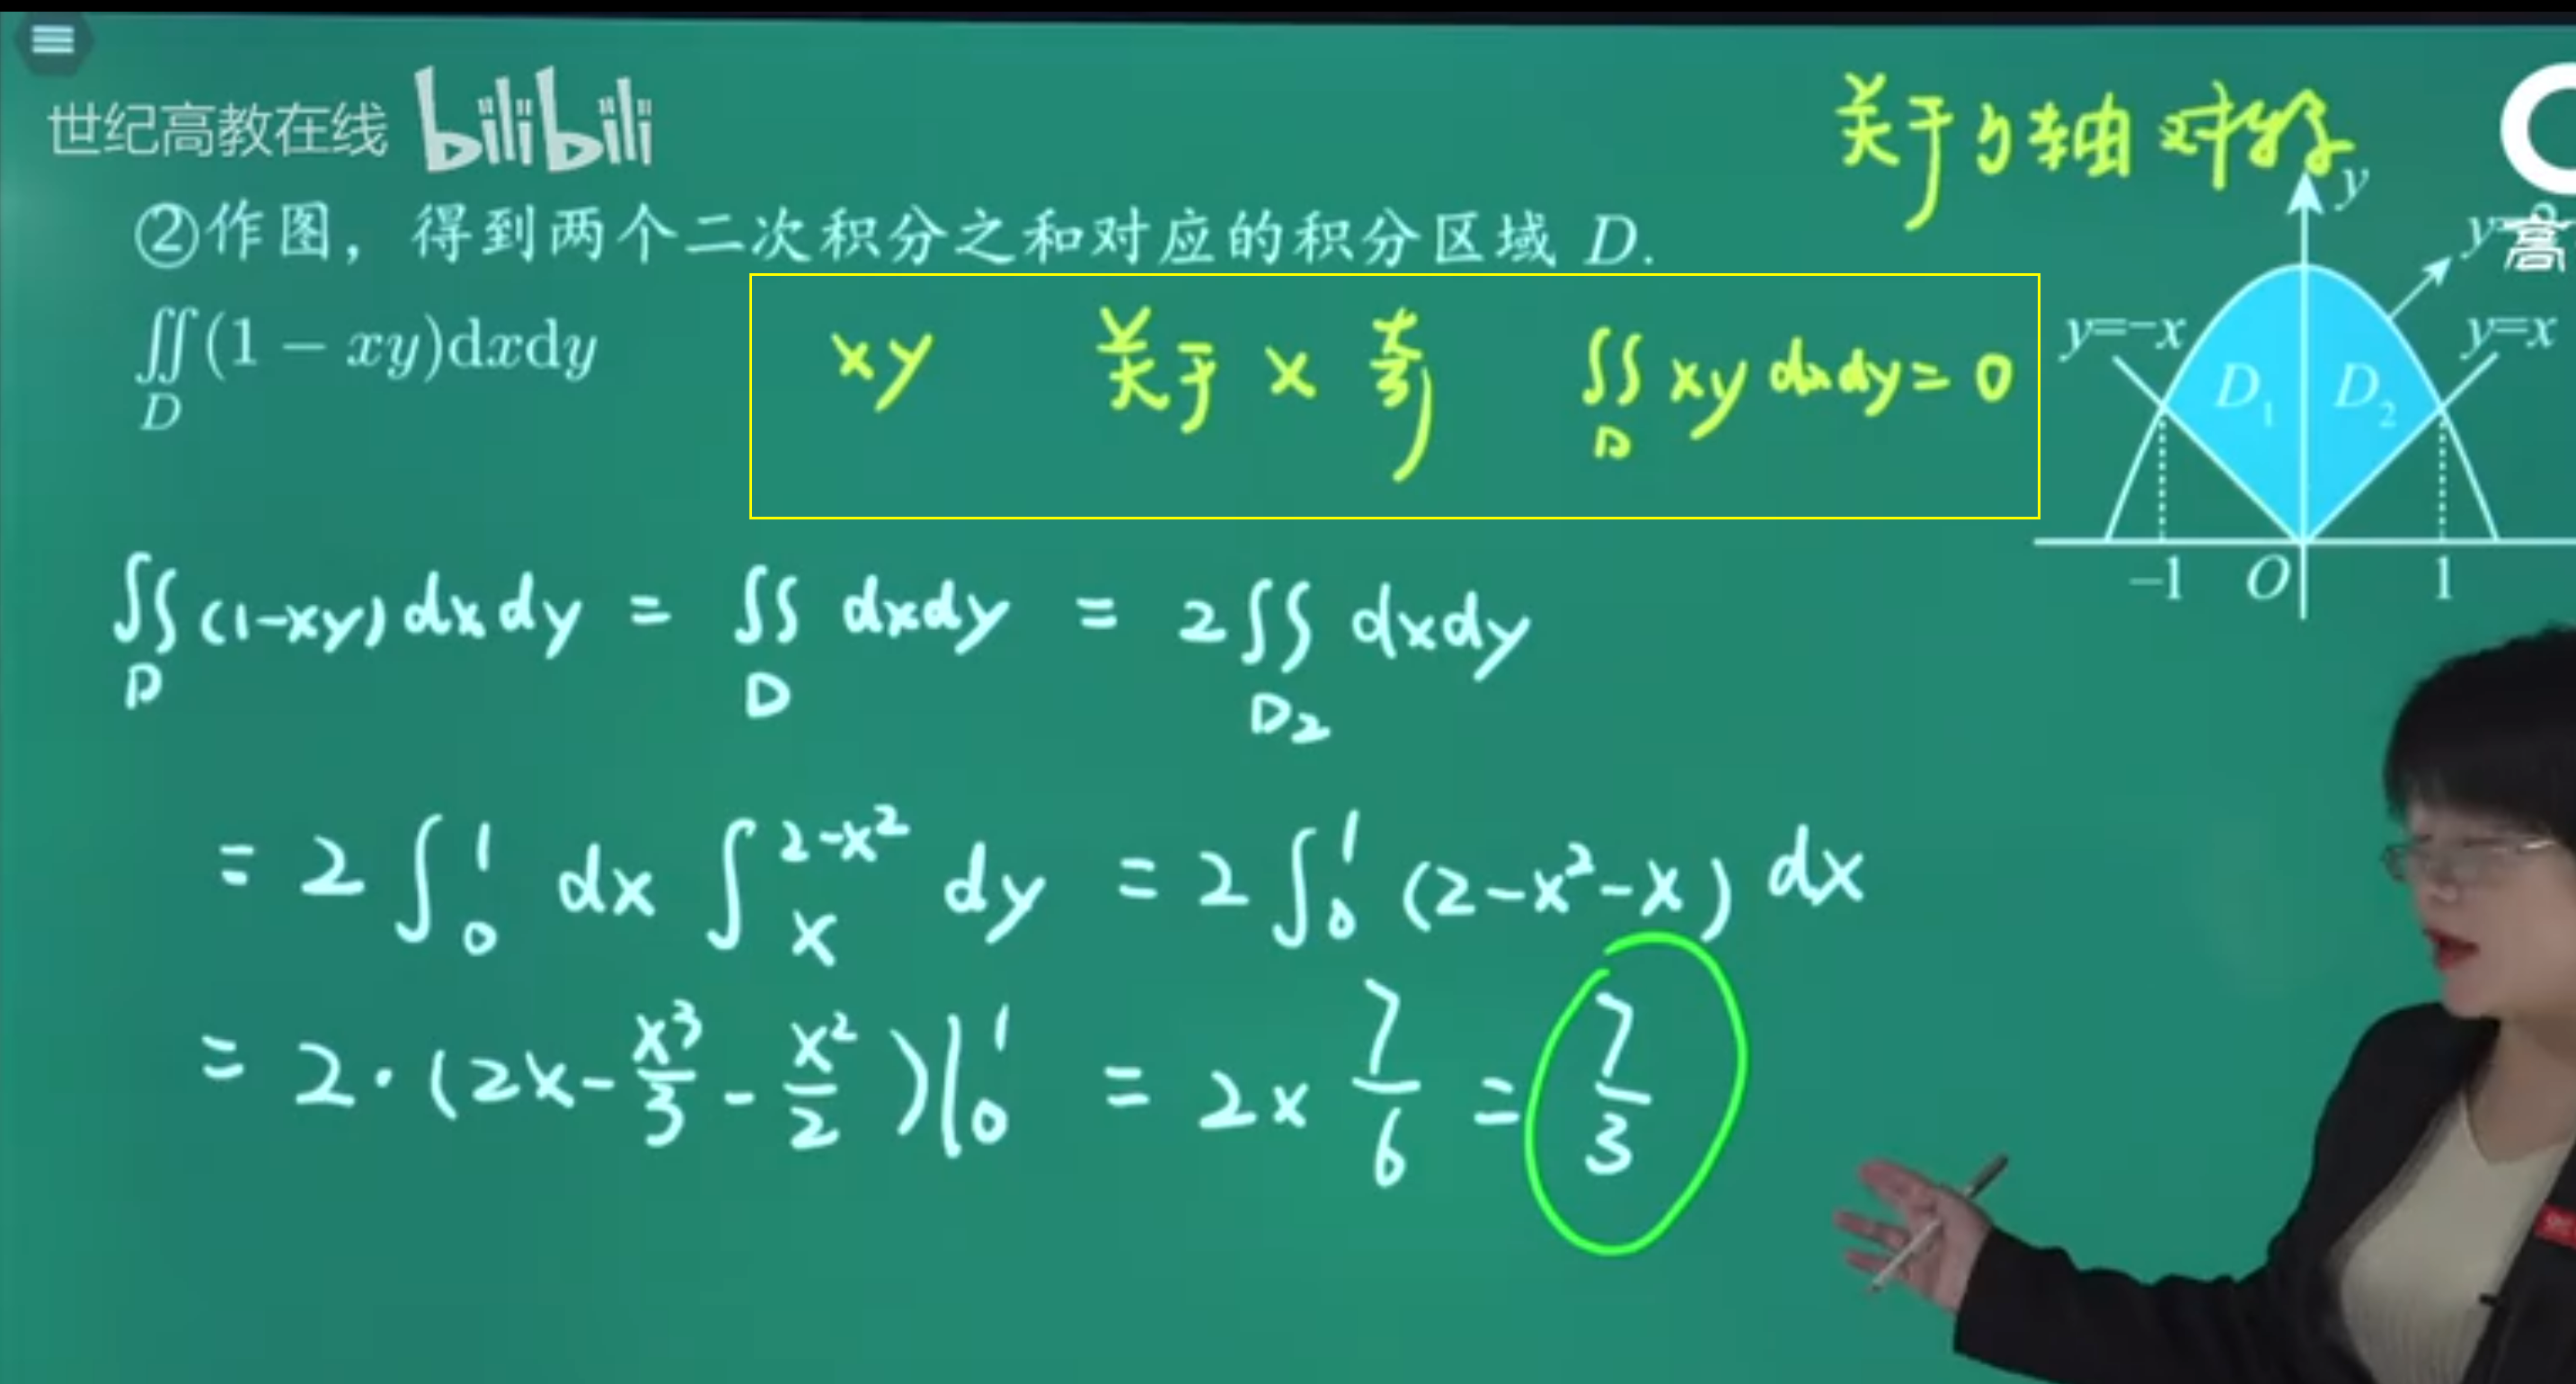 世纪高教在线 bilibili
关于y轴对称
②作图，得到两个二次积分之和对应的积分区域 D.
∬_D (1 − xy)dxdy
xy 关于 x 奇 ∬_D xy dxdy = 0
y
y=−x
y=x
D₁ D₂
−1 O 1
高
∬_D (1-xy) dxdy = ∬_D dxdy = 2∬_D₂ dxdy
= 2 ∫₀¹ dx ∫ₓ^(2-x²) dy = 2 ∫₀¹ (2-x²-x) dx
= 2·(2x - x³/3 - x²/2)|₀¹ = 2× 7/6 = 7/3